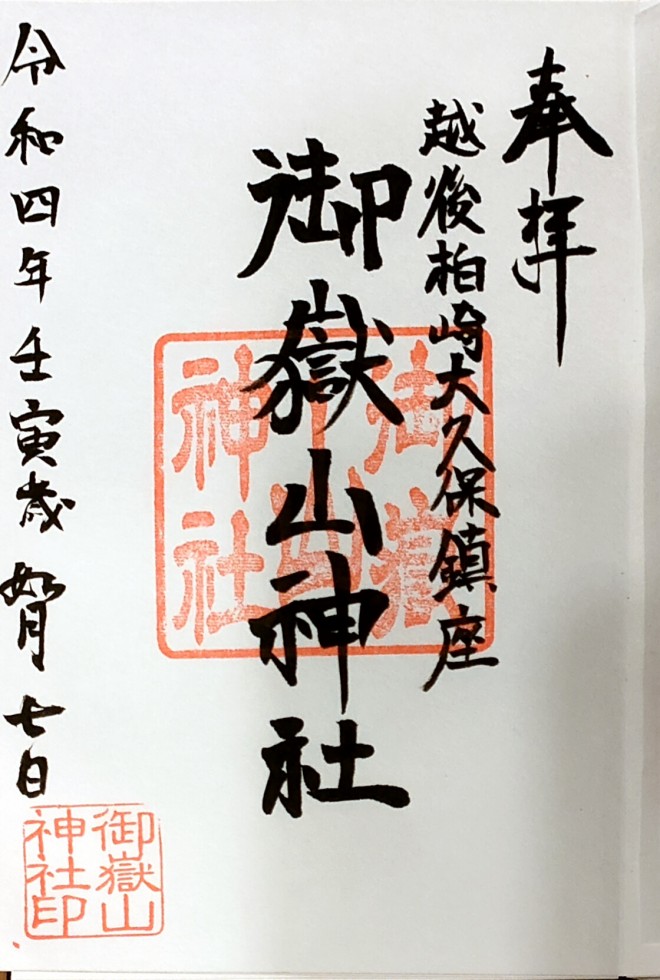 奉拝
越後柏崎大久保鎮座
御嶽山神社
御嶽山神社
令和四年壬寅歳如月七日
御嶽山神社印